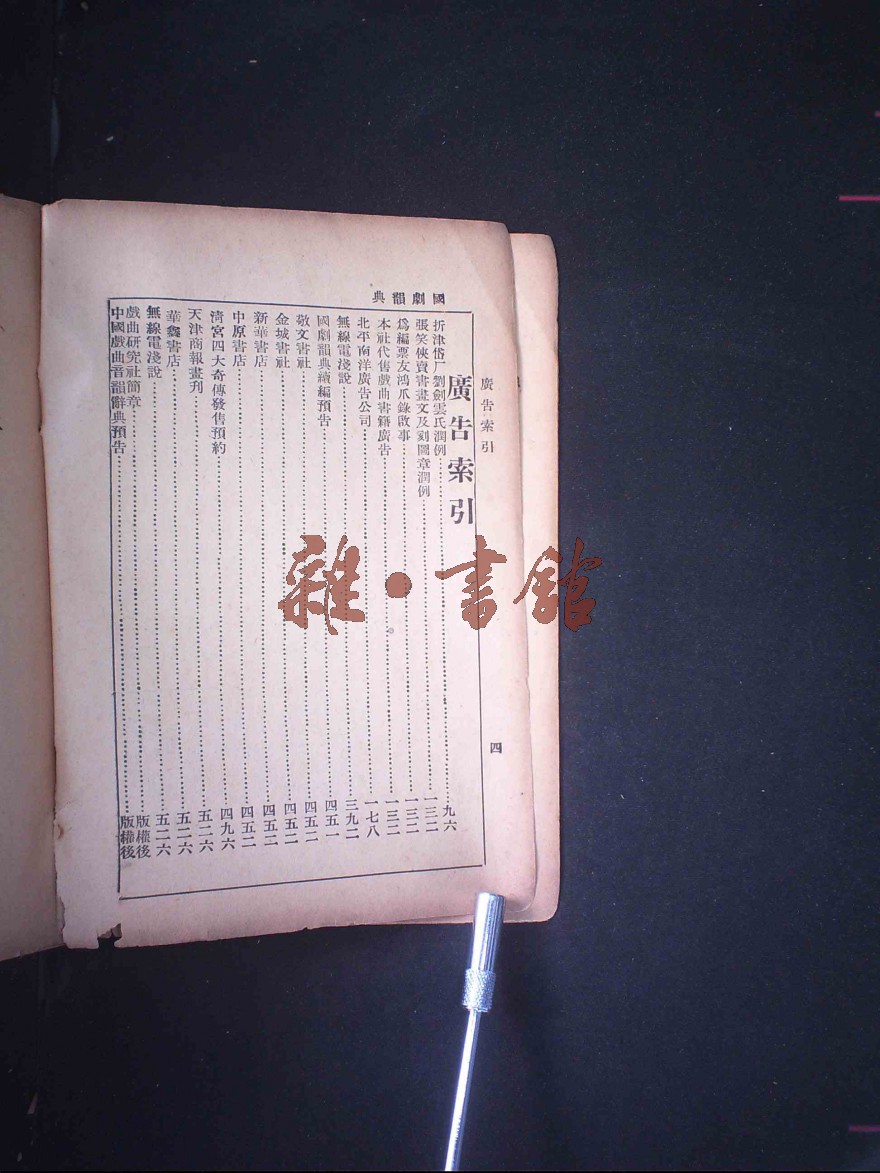 國劇韻典
廣告索引
四
廣告索引
折津岱厂劉劍雲氏潤例……九六
張笑俠賣書畫文及刻圖章潤例……一三二
爲編票友鴻爪錄啟事……一三二
本社代售戲曲書籍廣告……一三二
北平南洋廣告公司……一七八
無線電淺說……三九二
國劇韻典續編預告……四五一
敬文書社……四五二
金城書社……四五二
新華書店……四五二
中原書店……四五二
淸宮四大奇傳發售預約……四九六
天津商報畫刊……五二六
華鑫書店……五二六
無線電淺說……五二六
戲曲研究社簡章……版權後
中國戲曲音韻辭典預告……版權後
雜·書館